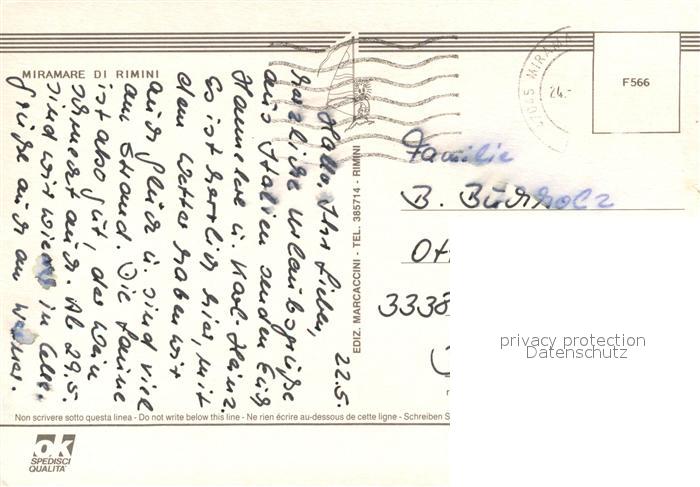 MIRAMARE DI RIMINI
22.5.
Hallo, Ihr Lieben,
herzliche Urlaubsgrüße
aus Italien senden Euch
Hannelore u. Karl-Heinz.
Es ist herrlich hier, mit
dem Wetter haben wir
auch Glück u. sind viel
am Strand. Die Laune
ist also gut, der Wein
schmeckt auch. Ab 29.5.
sind wir wieder in Celle.
Grüße auch an Werner.
EDIZ. MARCACCINI - TEL. 385714 - RIMINI
47045 MIRAMA
24.-
F566
Familie
B. Buchholz
Ott
3338
privacy protection
Datenschutz
Non scrivere sotto questa linea - Do not write below this line - Ne rien écrire au-dessous de cette ligne - Schreiben S
ok
SPEDISCI
QUALITA'